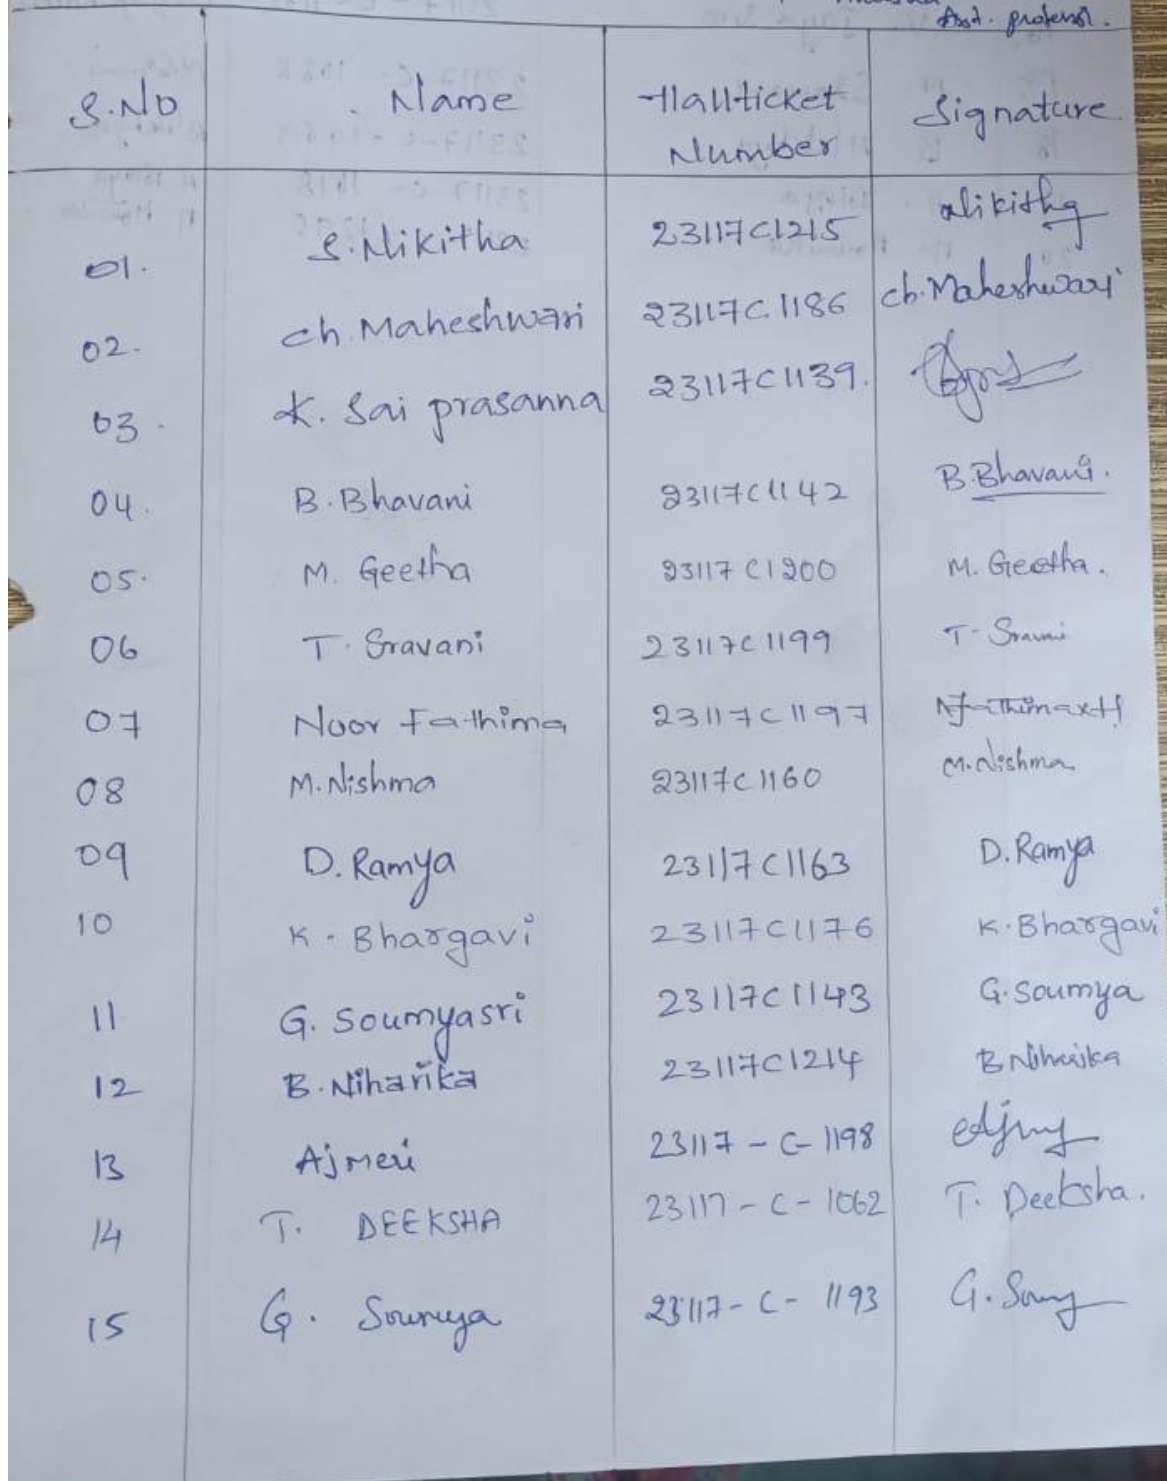 Asst. profensor.
S.No Name Hallticket Number Signature
01. S.Nikitha 23117C1215 Nikitha
02. Ch. Maheshwari 23117C1186 Ch. Maheshwari
03. K. Sai prasanna 23117C1139.
04. B. Bhavani 23117C1142 B. Bhavani.
05. M. Geetha 23117C1200 M. Geetha.
06 T. Sravani 23117C1199 T. Sravani
07 Noor Fathima 23117C1197
08 M.Nishma 23117C1160 M.Nishma
09 D. Ramya 23117C1163 D. Ramya
10 K. Bhargavi 23117C1176 K. Bhargavi
11 G. Soumyasri 23117C1143 G. Soumya
12 B. Niharika 23117C1214 B Niharika
13 Ajmeri 23117-C-1198
14 T. DEEKSHA 23117-C-1062 T. Deeksha.
15 G. Soumya 23117-C-1193 G. Soumy